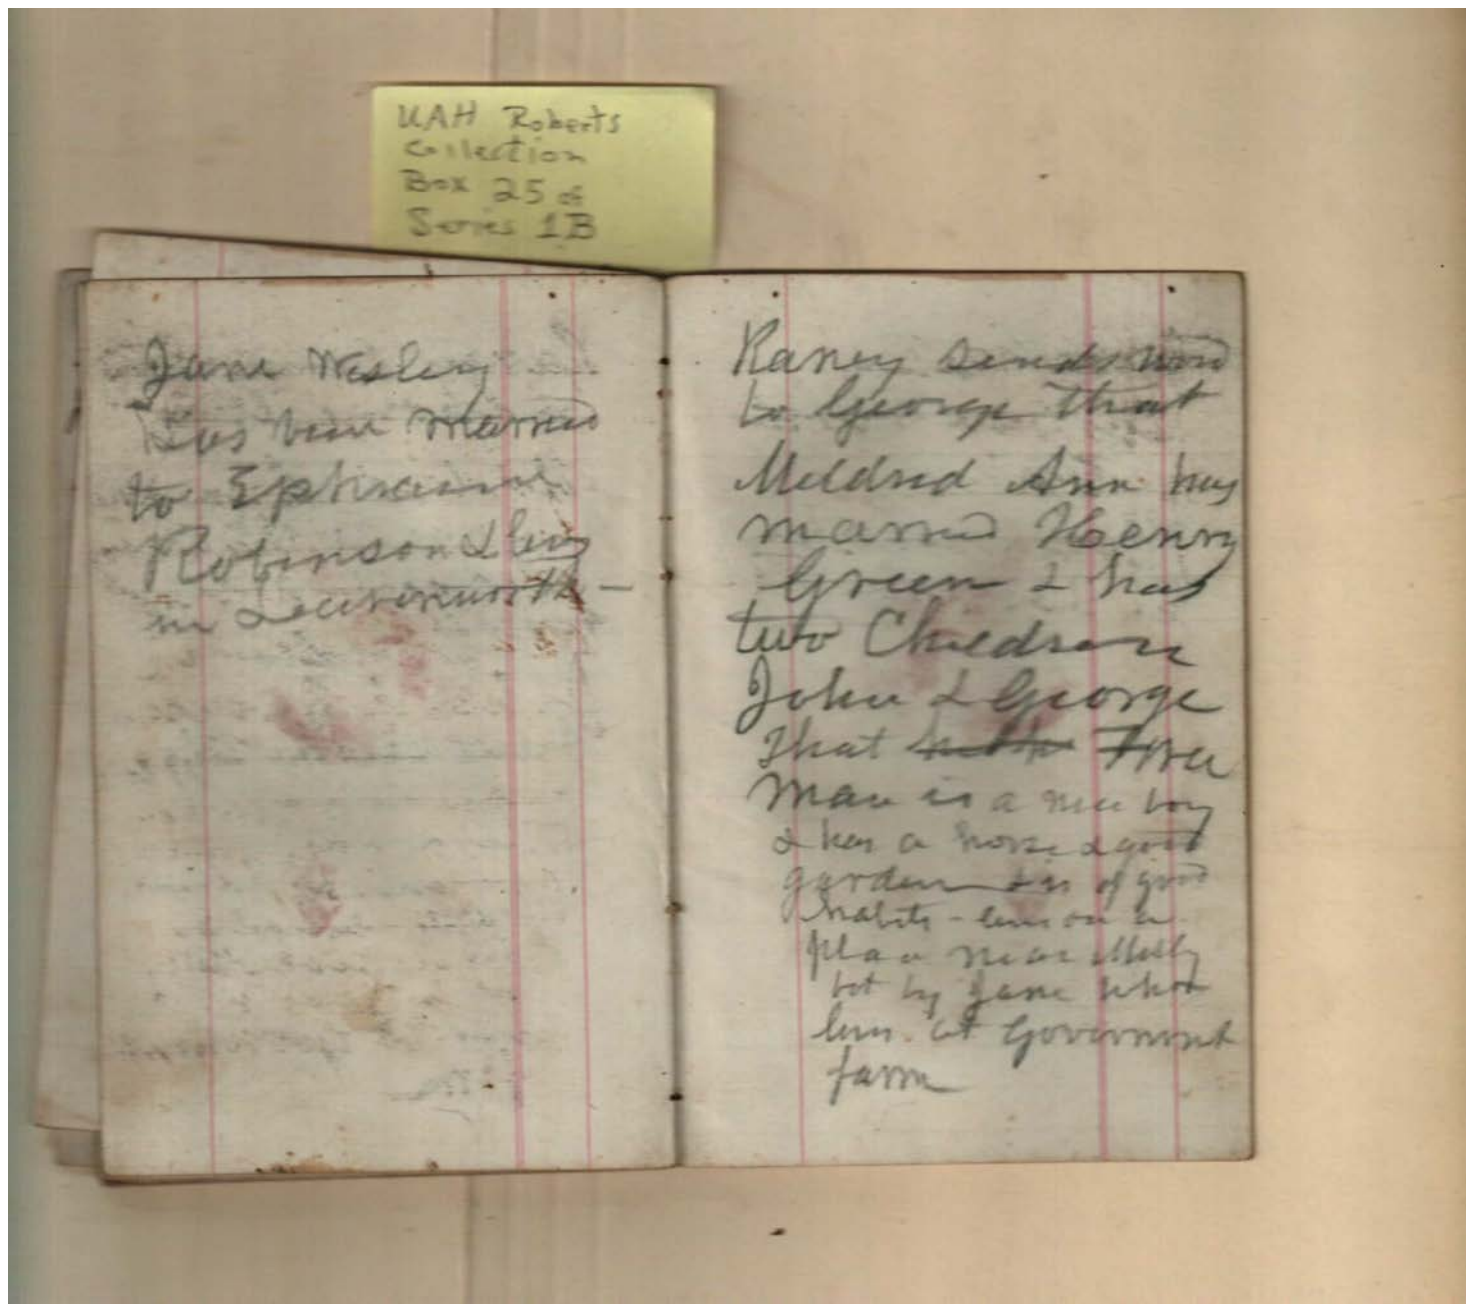 UAH Roberts
Collection
Box 25 of
Series 1B
Jane Wesley
has been married
to Ephraim
Robinson & livs
in Leavenworth -
Raney sends word
to George that
Mildred Ann has
married Henry
Green & has
two Children
John & George
That Free
Man is a nice boy
& has a horse & good
garden & is of good
habits - livs on a
place near Milly
bot by Jane who
livs at Government
farm